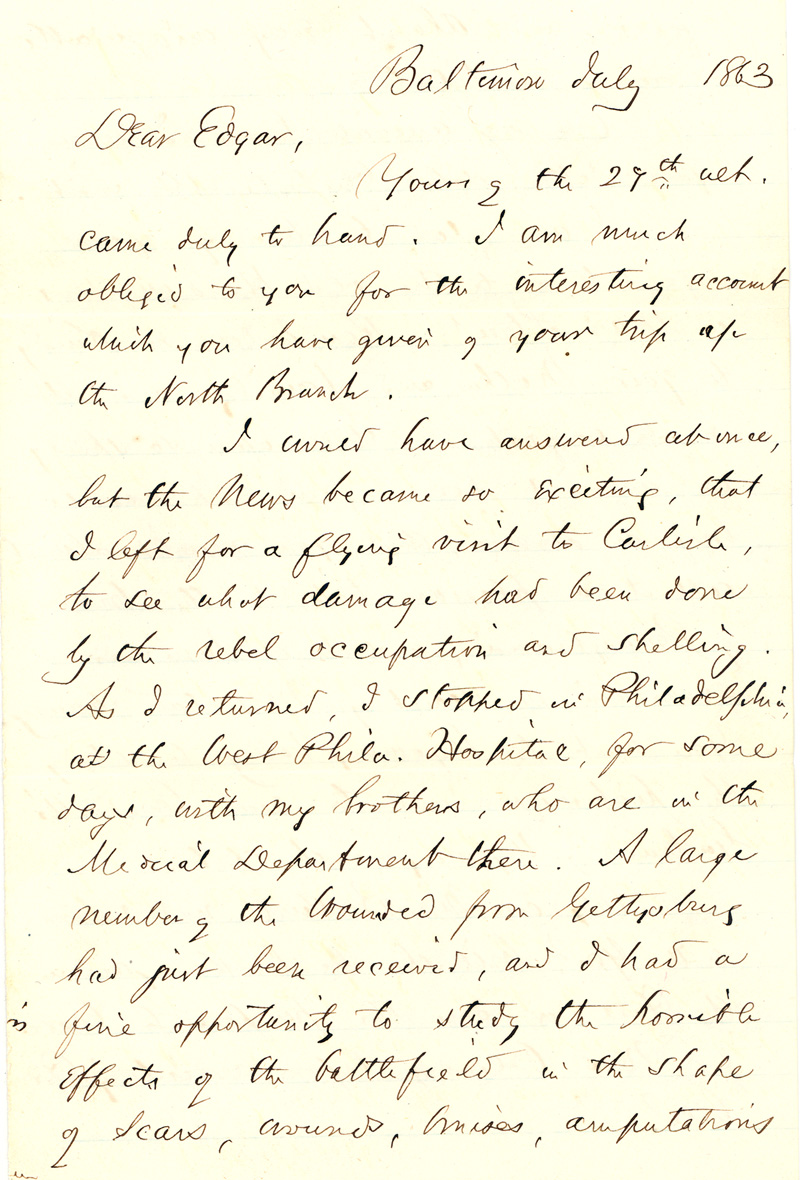 Baltimore July 1863
Dear Edgar,
Yours of the 29th ult.
came duly to hand. I am much
obliged to you for the interesting account
which you have given of your trip up
the North Branch.
I would have answered at once,
but the News became so exciting, that
I left for a flying visit to Carlisle,
to see what damage had been done
by the rebel occupation and shelling.
As I returned, I stopped in Philadelphia,
at the West Phila. Hospital, for some
days, with my brothers, who are in the
Medical Department there. A large
number of the wounded from Gettysburg
had just been received, and I had a
fine opportunity to study the horrible
effects of the battlefield in the shape
of scars, wounds, bruises, amputations